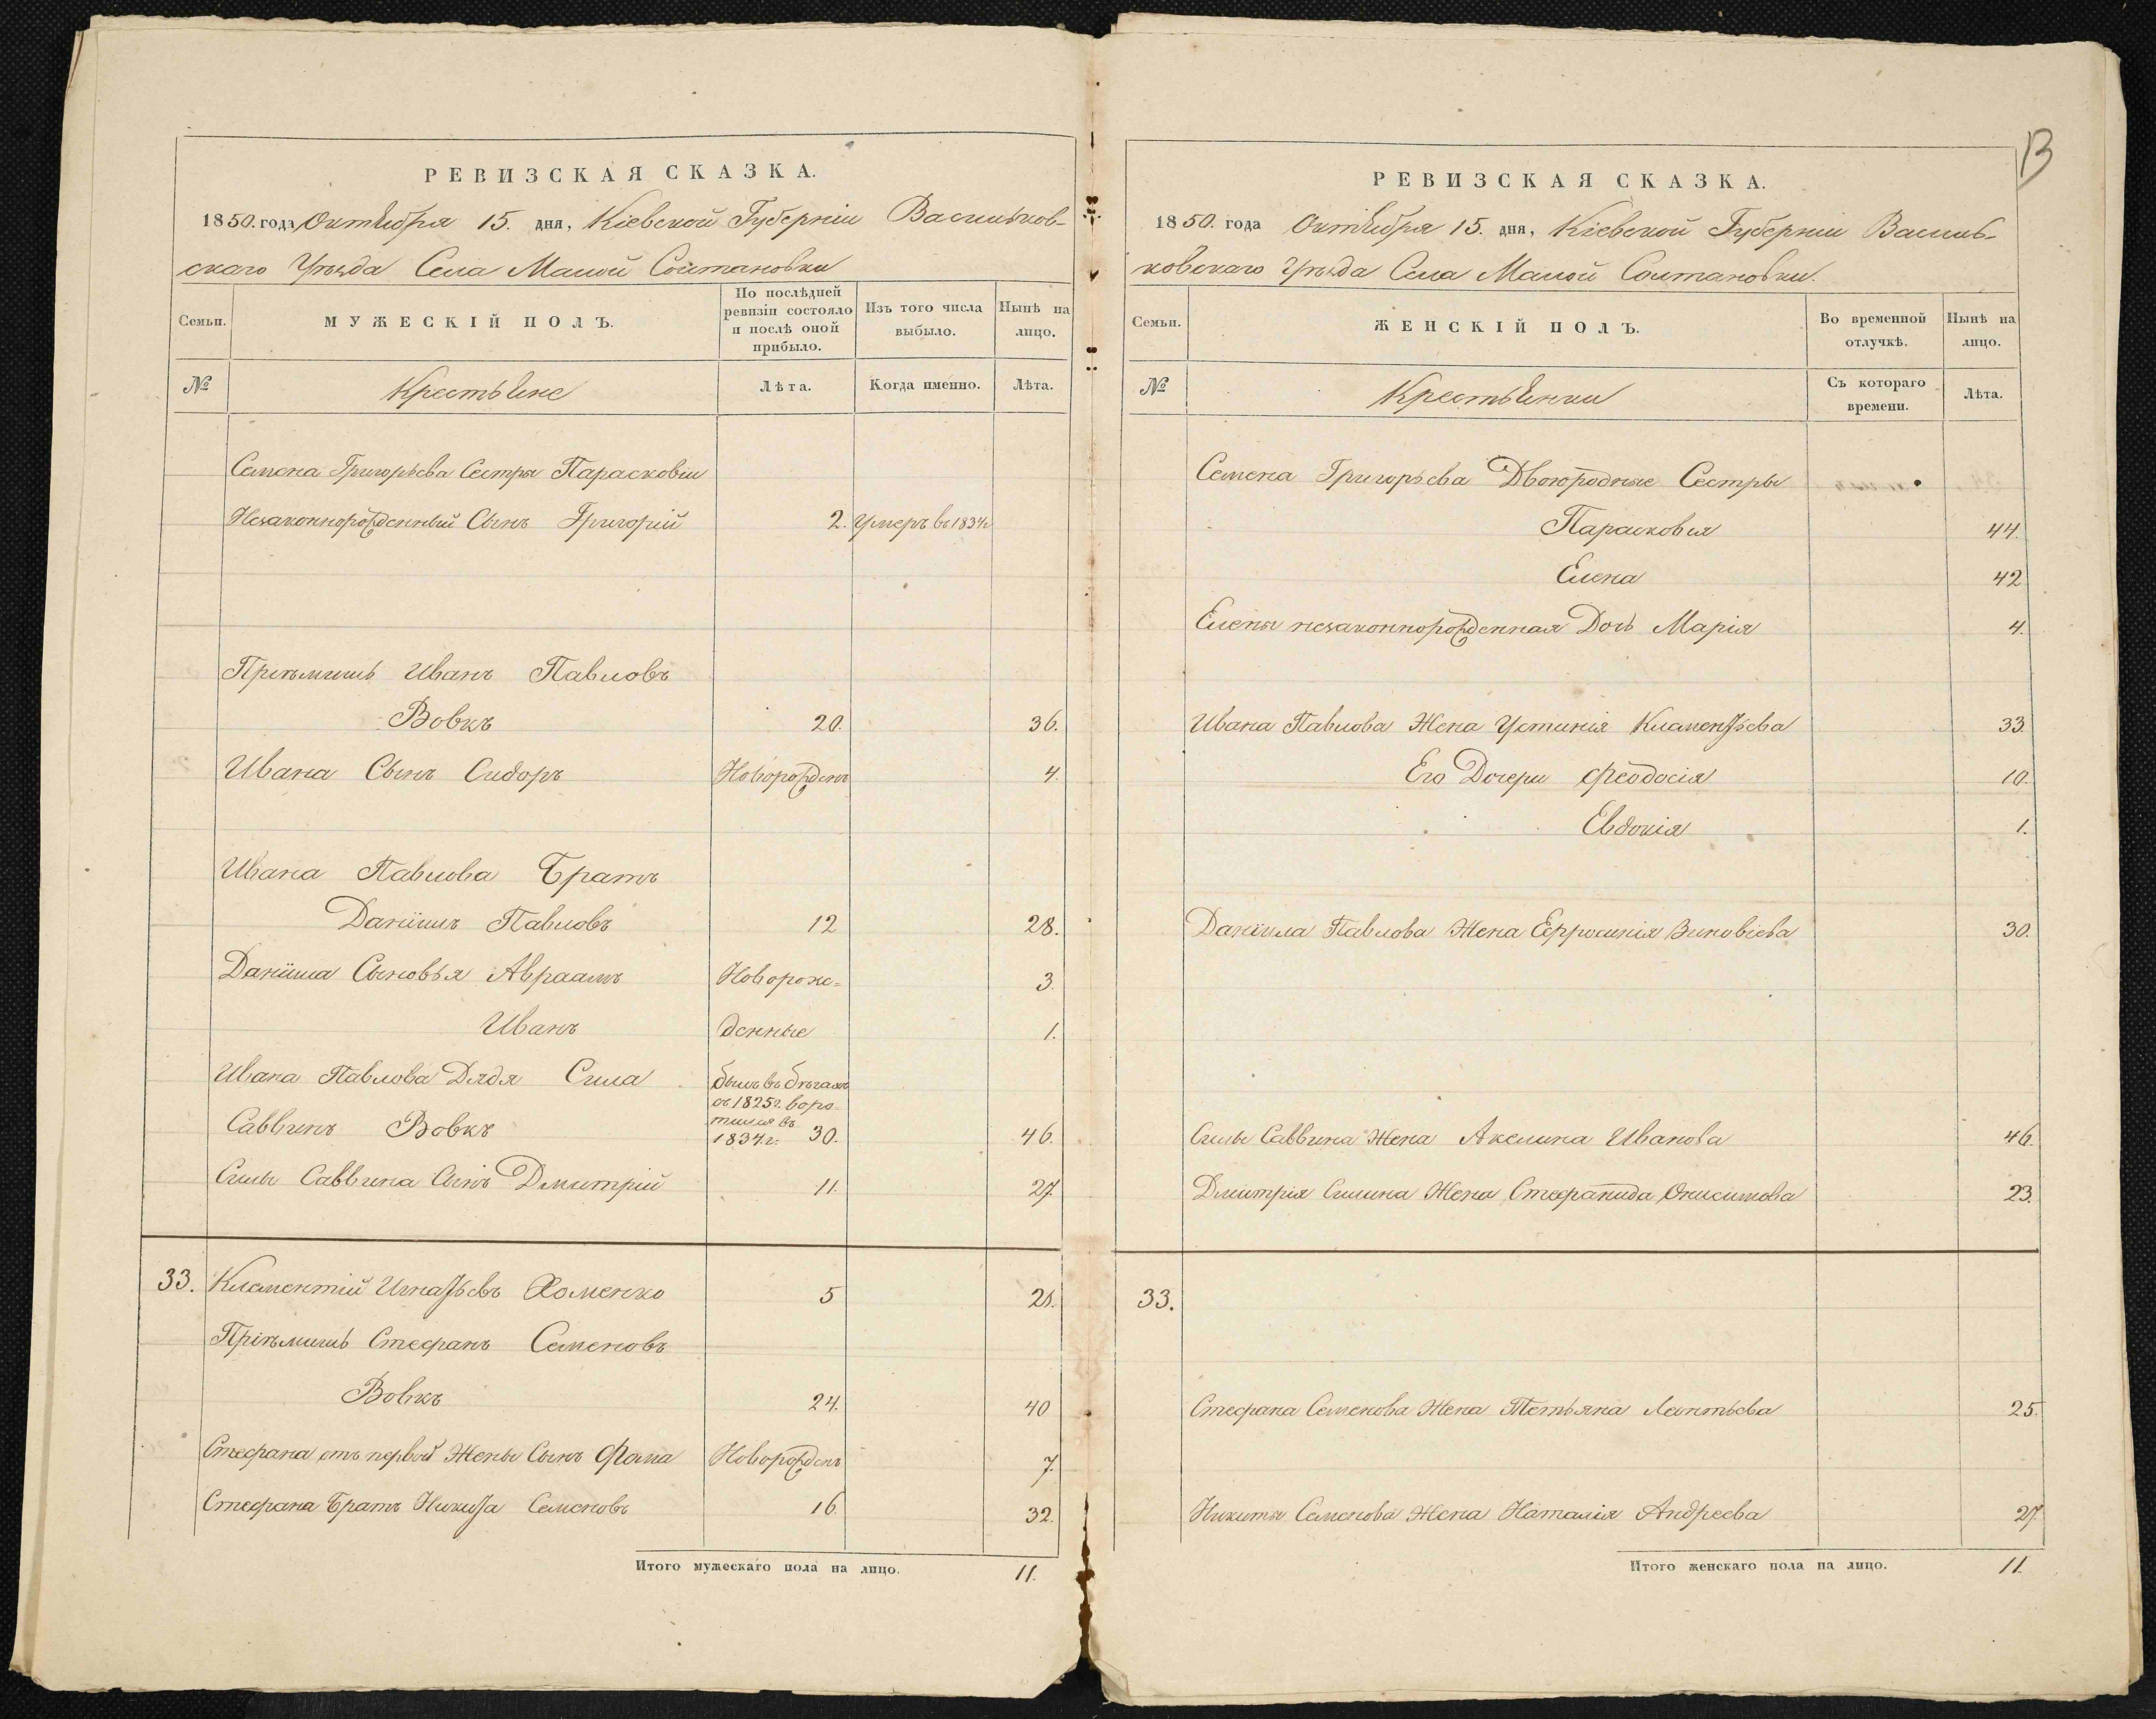 РЕВИЗСКАЯ СКАЗКА.
1850. года Октября 15. дня, Кіевской Губерніи Васильков-
скаго Уѣзда Села Малой Солтановки
Семьи.
МУЖЕСКІЙ ПОЛЪ.
По послѣдней ревизіи состояло и послѣ оной прибыло.
Изъ того числа выбыло.
Нынѣ на лицо.
№
Крестьяне
Лѣта.
Когда именно.
Лѣта.
Семена Григорьева Сестры Парасковіи
Незаконнорожденный Сынъ Григорій 2. умеръ въ 1834г
Пріѣмишь Иванъ Павловъ
Вовкъ 20. 36.
Ивана Сынъ Сидоръ Новорожденъ 4.
Ивана Павлова Братъ
Даніилъ Павловъ 12 28.
Даніила Сыновья Авраамъ Новорож= 3.
Иванъ денные 1.
Ивана Павлова Дядя Сила былъ въ бѣгахъ
съ 1825г. воро-
Саввинъ Вовкъ тился въ
1834г. 30. 46.
Силы Саввина Сынъ Дмитрій 11. 27.
33. Климентій Игнатьевъ Хоменко 5 21.
Пріѣмишь Стефанъ Семеновъ
Вовкъ 24. 40
Стефана отъ первой Жены Сынъ Фома Новорожденъ 7.
Стефана Братъ Никита Семеновъ 16. 32.
Итого мужескаго пола на лицо. 11.
13
РЕВИЗСКАЯ СКАЗКА.
1850. года Октября 15. дня, Кіевской Губерніи Василь-
ковскаго Уѣзда Села Малой Солтановки.
Семьи.
ЖЕНСКІЙ ПОЛЪ.
Во временной отлучкѣ.
Нынѣ на лицо.
№
Крестьянки
Съ котораго времени.
Лѣта.
Семена Григорьева Двоюродные Сестры
Парасковія 44.
Елена 42
Елены незаконнорожденная Дочь Марія 4.
Ивана Павлова Жена Устинія Климентьева 33.
Его Дочери Феодосія 10.
Евдокія 1.
Даніила Павлова Жена Ефросинія Зиновіева 30.
Силы Саввина Жена Акелина Иванова 46.
Дмитрія Силина Жена Стефанида Онисимова 23.
33.
Стефана Семенова Жена Тетьяна Леонтьева 25.
Никиты Семенова Жена Наталія Андреева 27
Итого женскаго пола на лицо. 11.